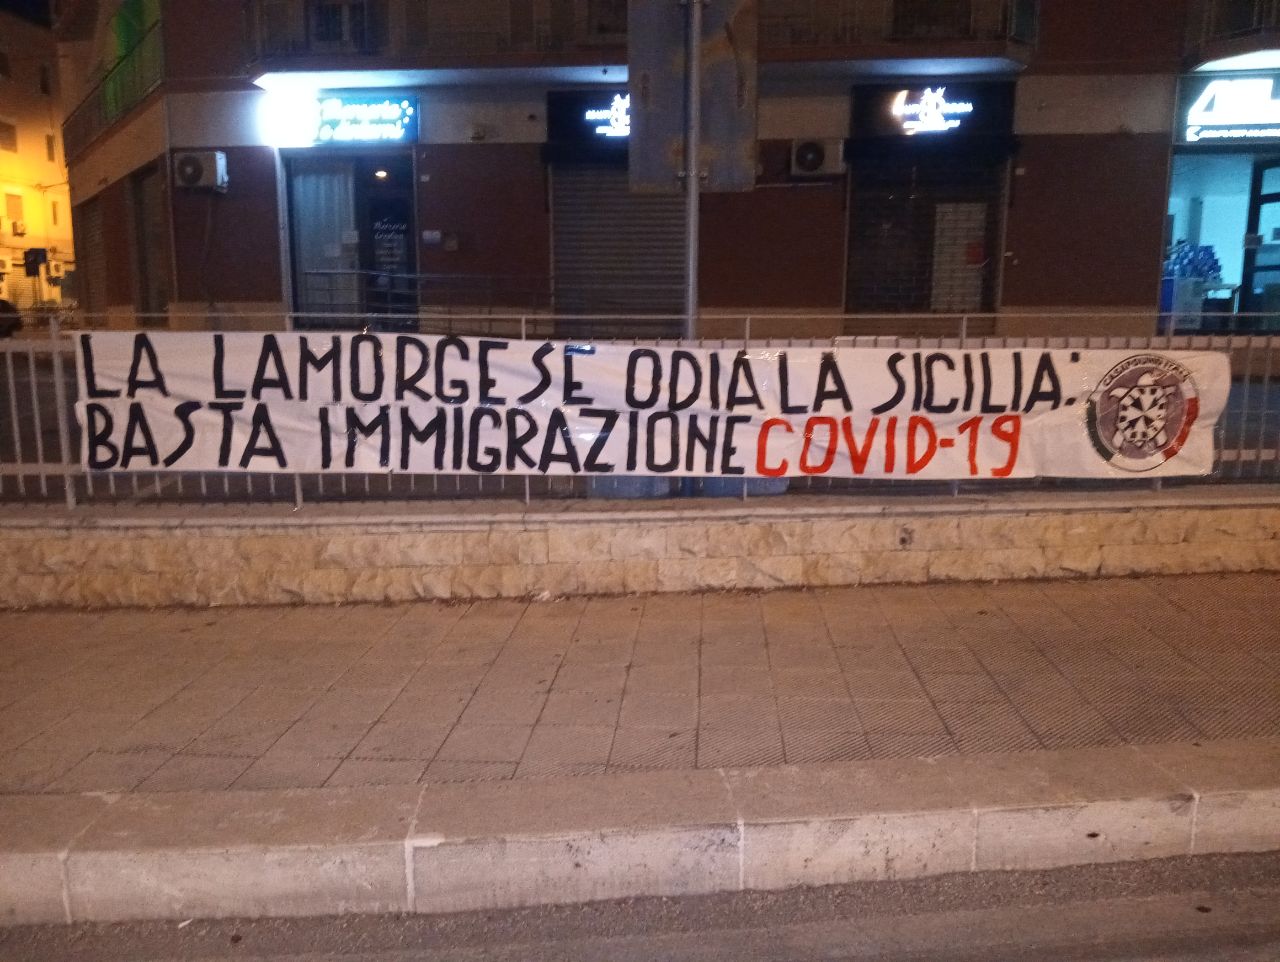 LA LAMORGESE ODIA LA SICILIA:
BASTA IMMIGRAZIONE COVID-19
CASAPOUND ITALIA